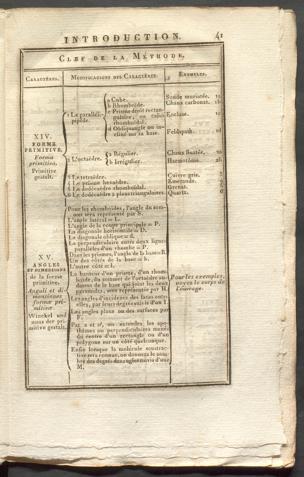 INTRODUCTION. 41
CLEF DE LA MÉTHODE.
CARACTÈRES. MODIFICATIONS DES CARACTÈRES. EXEMPLES.
XIV.
FORME
PRIMITIVE.
Forma
primitiva.
Primitive
gestalt.
1 Le parallélipipède.
a Cube.
b Rhomboïde.
c Prisme droit rectangulaire, ou rhomboïdal.
d Obliquangle ou incliné sur sa base.
Soude muriatée. 1a
Chaux carbonat. 1b
Euclase. 1c
Feldspath. 1d
2 L'octaèdre.
a Régulier.
b Irrégulier.
Chaux fluatée. 2a
Harmotome. 2b
3 Le tétraèdre.
4 Le prisme hexaèdre.
5 Le dodécaèdre rhomboïdal.
6 Le dodécaèdre à plans triangulaires.
Cuivre gris. 3
Emeraude. 4
Grenat. 5
Quartz. 6
XV.
ANGLES
ET DIMENSIONS
de la forme
primitive.
Anguli et dimensiones
formæ primitivæ.
Winckel und
der primitive gestalt.
Pour les rhomboïdes, l'angle du sommet sera représenté par S.
L'angle latéral = L.
L'angle de la coupe principale = P.
La diagonale horizontale = D.
La diagonale oblique = d.
La perpendiculaire entre deux lignes parallèles d'un rhombe = P.
Dans les prismes, l'angle de la base = B.
Un des côtés de la base = b.
L'autre côté = l.
La hauteur d'un prisme, d'un rhomboïde, du sommet de l'octaèdre au-dessus de la base qui joint les deux pyramides, sera représentée par H.
Les angles d'incidence des faces entr'elles, par leurs degrés suivis d'un I.
Les angles plans ou des surfaces par F.
Enfin lorsque la molécule soustractive sera connue, on donnera le nombre des degrés des angles suivis d'une M.
Pour les exemples,
voyez le corps de
l'ouvrage.